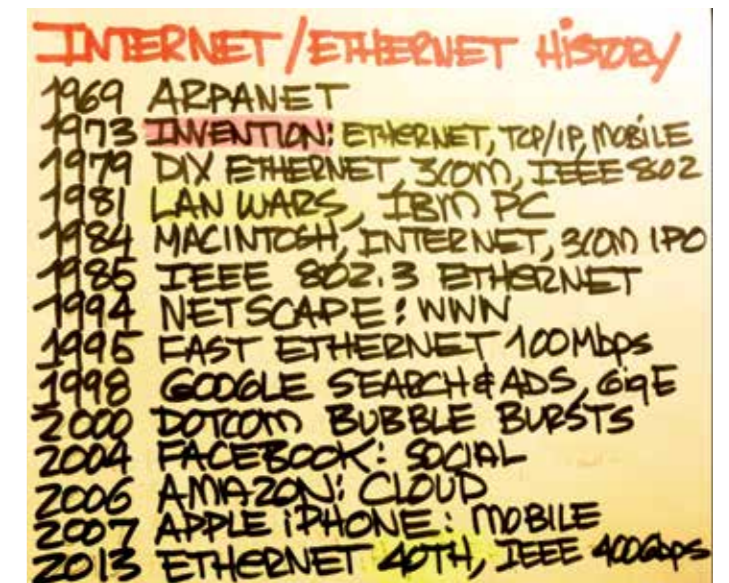 INTERNET/ETHERNET HISTORY
1969 ARPANET
1973 INVENTION: ETHERNET, TCP/IP, MOBILE
1979 DIX ETHERNET, 3COM, IEEE 802
1981 LAN WARS, IBM PC
1984 MACINTOSH, INTERNET, 3COM IPO
1985 IEEE 802.3 ETHERNET
1994 NETSCAPE: WWW
1995 FAST ETHERNET 100Mbps
1998 GOOGLE SEARCH & ADS, GigE
2000 DOTCOM BUBBLE BURSTS
2004 FACEBOOK: SOCIAL
2006 AMAZON: CLOUD
2007 APPLE iPHONE: MOBILE
2013 ETHERNET 40TH, IEEE 400Gbps